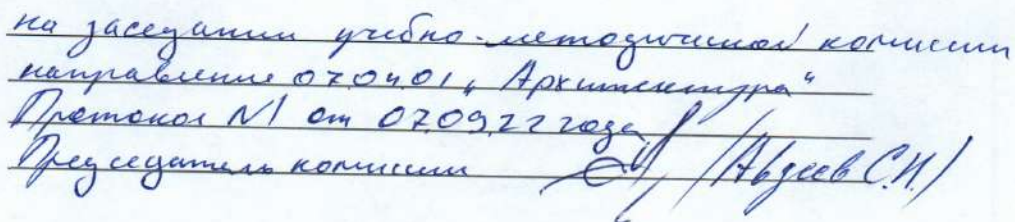 на заседании учебно-методической комиссии
направление 07.04.01 „Архитектура“
Протокол №1 от 07.09.22 года
Председатель комиссии (Авдеев С.И.)